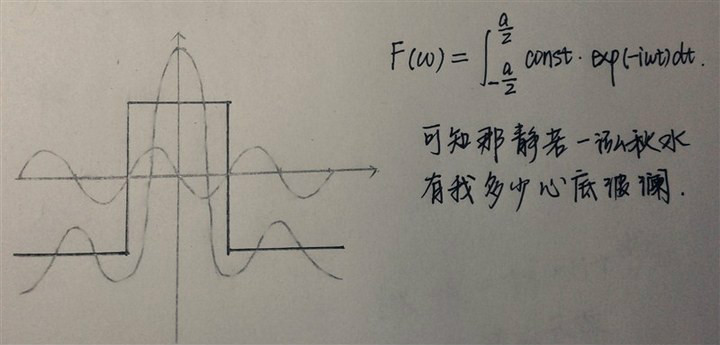 F(ω) = ∫_{-a/2}^{a/2} const · exp(-iωt)dt.
可知那静若一泓秋水
有我多少心底波澜.